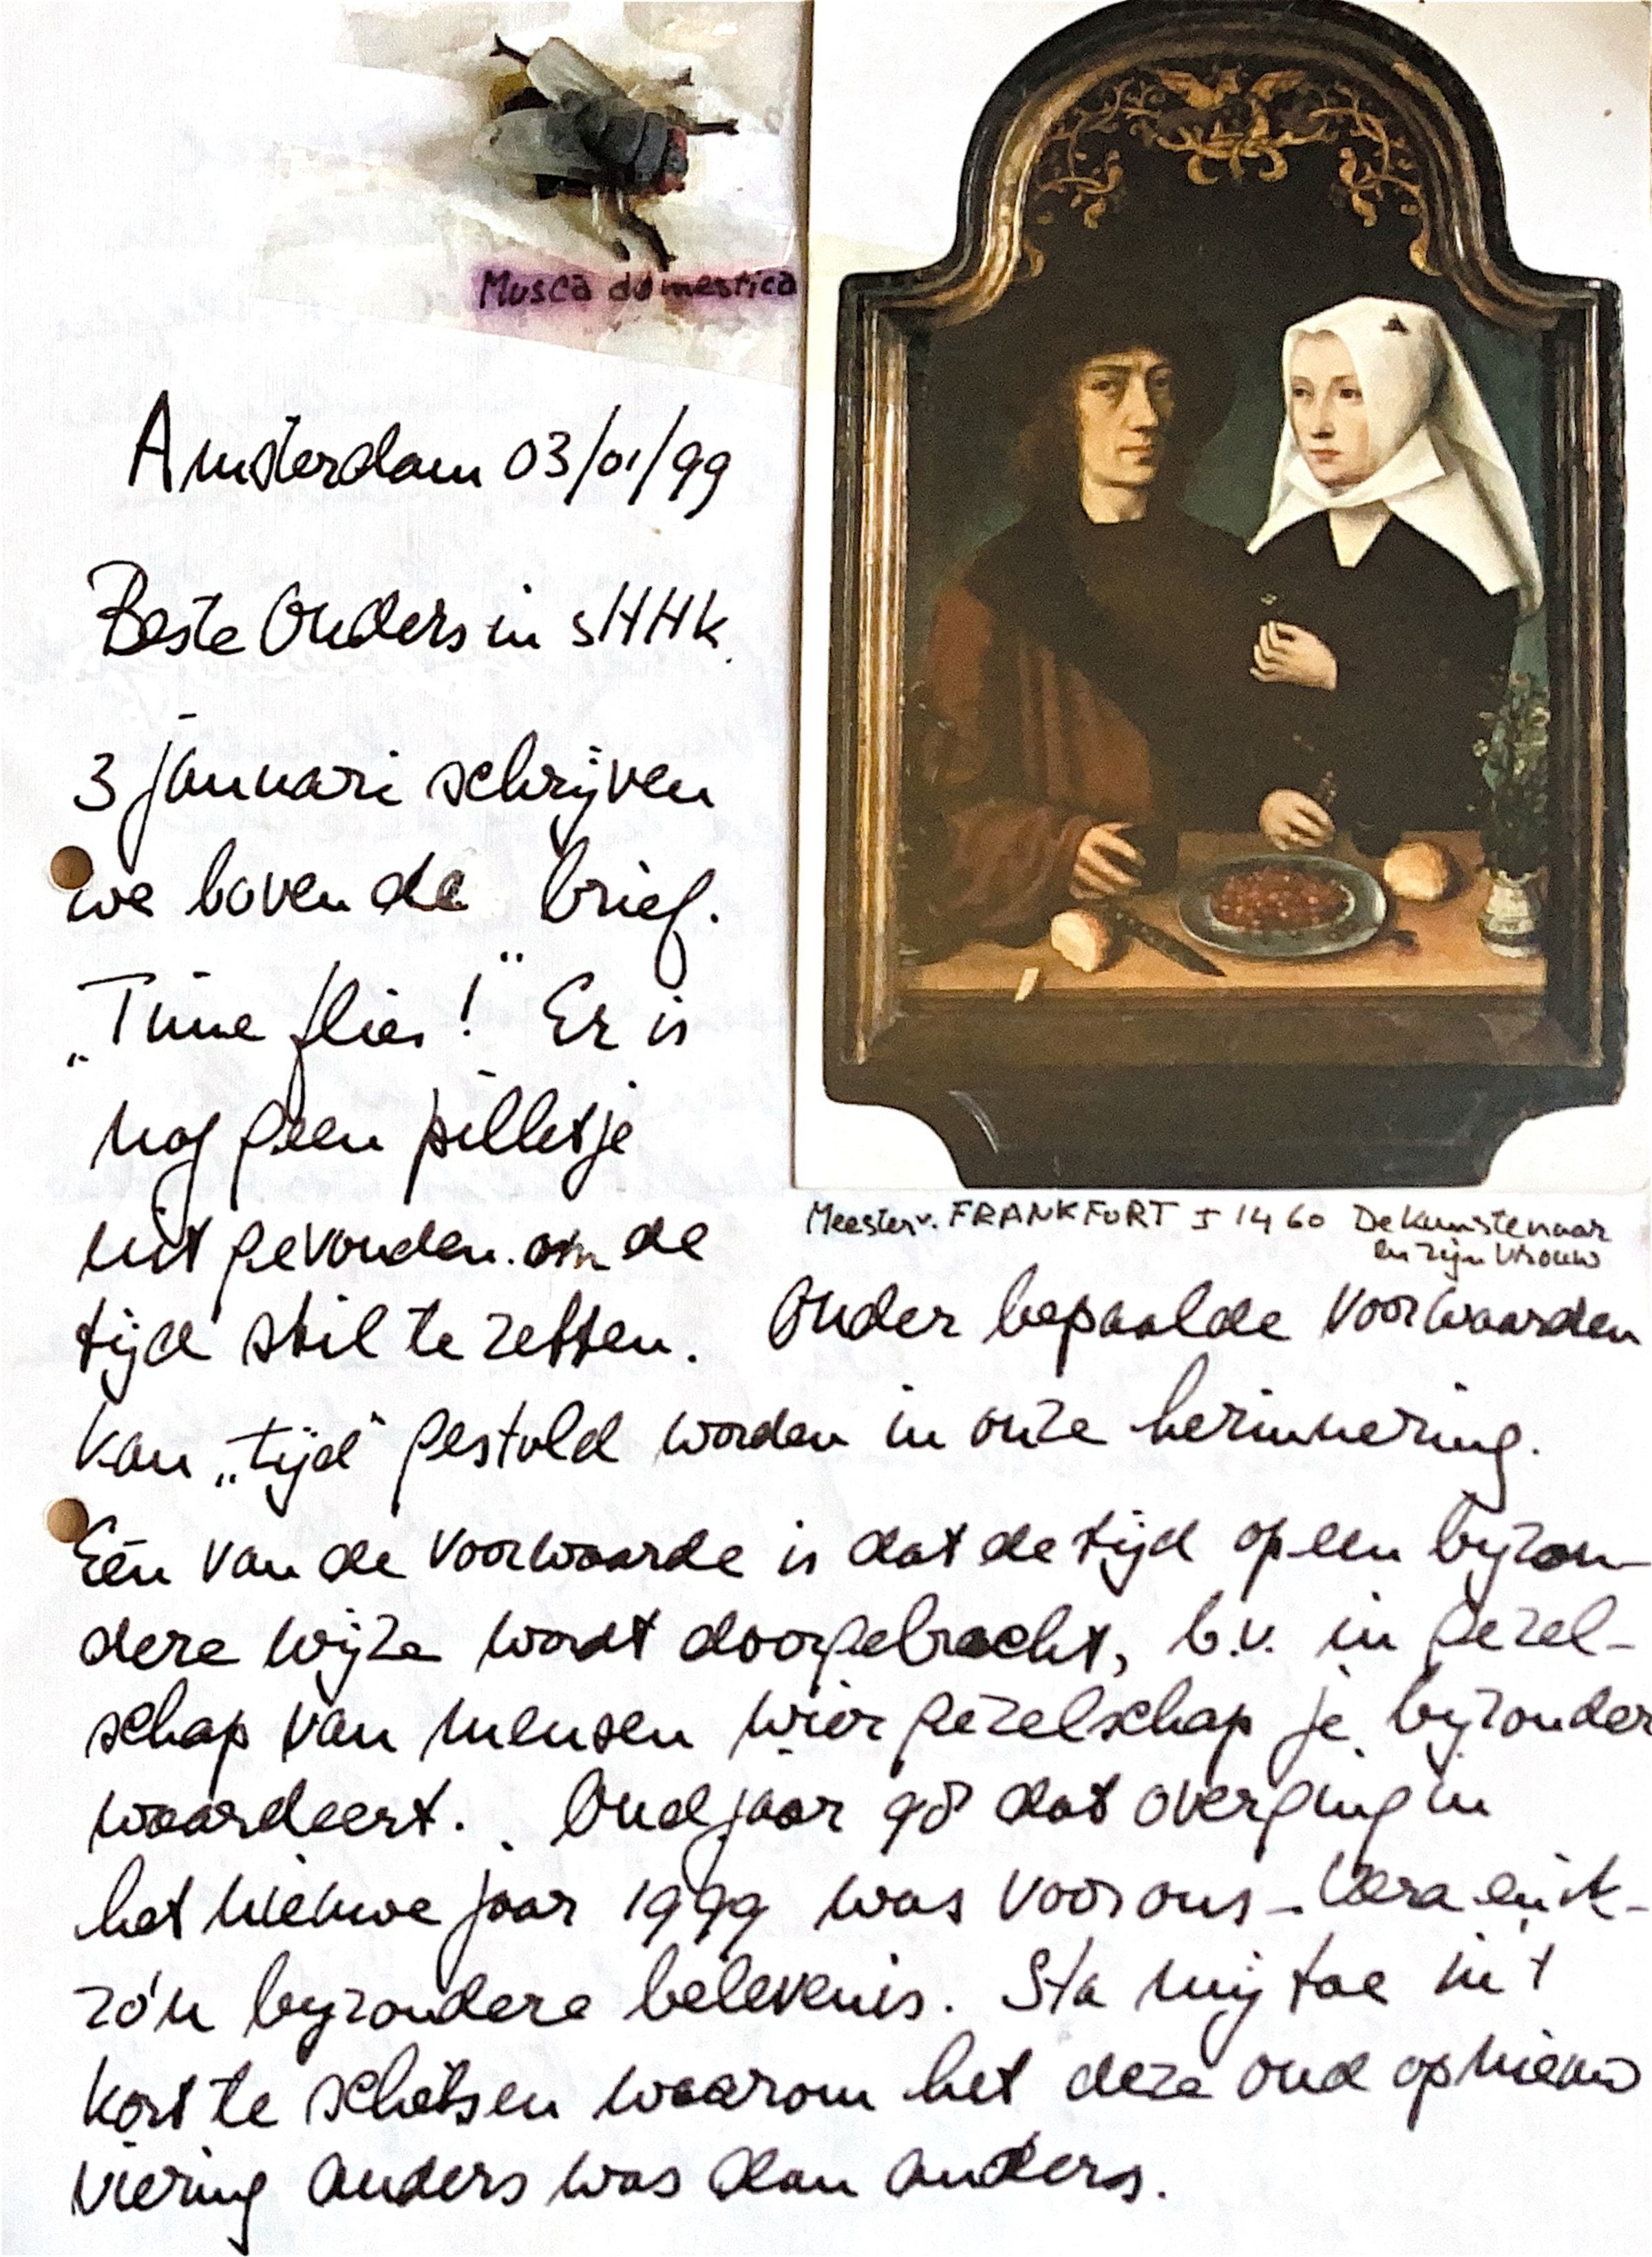 Musca domestica
Amsterdam 03/01/99
Beste Ouders in sHHk.
3 januari schrijven
we boven de brief.
„Time flies!” Er is
nog geen pilletje
uit gevonden om de
tijd stil te zetten.
Meester v. FRANKFURT ± 1460 De Kunstenaar
en zijn vrouw
Onder bepaalde voorwaarden
kan „tijd” gestold worden in onze herinnering.
Eén van de voorwaarde is dat de tijd op een byzon-
dere wijze wordt doorgebracht, b.v. in gezel-
schap van mensen wier gezelschap je byzonder
waardeert. Oud jaar 98 dat overging in
het nieuwe jaar 1999 was voor ons - Vera en ik -
zo'n byzondere belevenis. Sta mij toe in 't
kort te schetsen waarom het deze oud op nieuw
viering anders was dan anders.